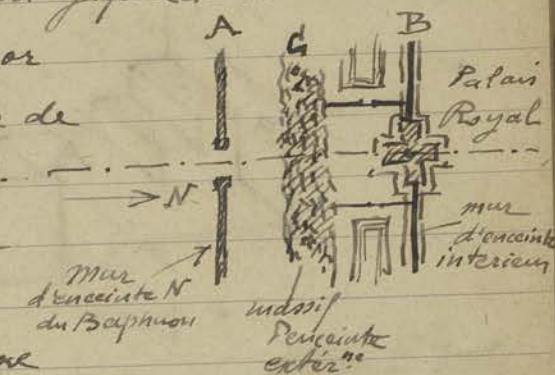 A
C
B
or
de
Palais
Royal
N
mur
d'enceinte N
du Baphuon
massif
d'enceinte
extérne
mur
d'enceinte
interieur